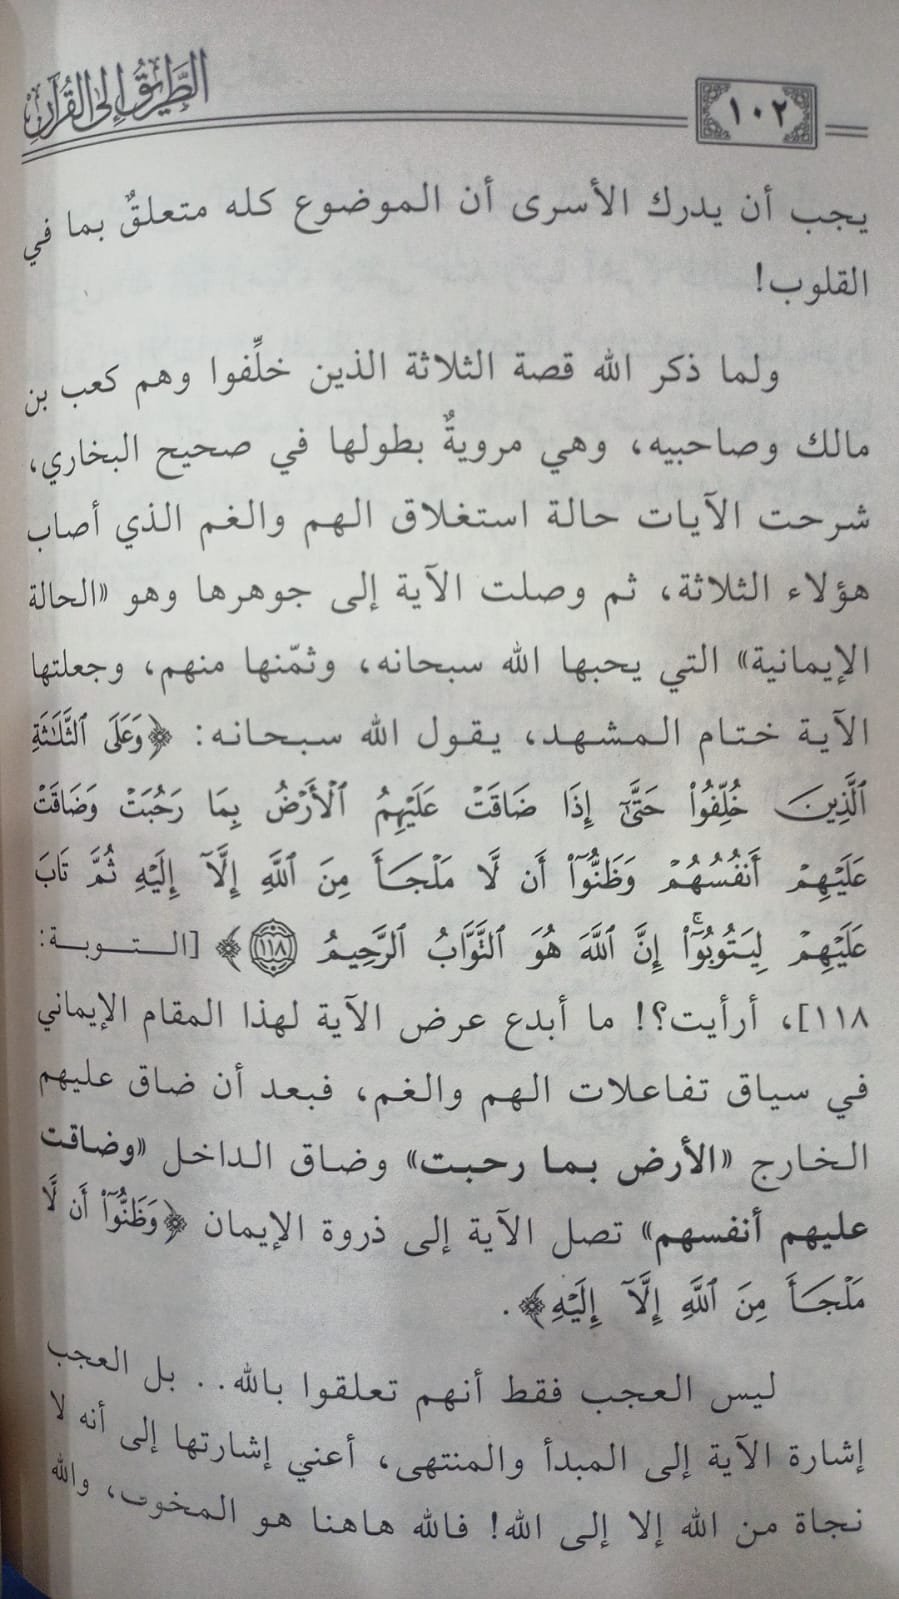 الطريق إلى القرآن
١٠٢
يجب أن يدرك الأسرى أن الموضوع كله متعلقٌ بما في
القلوب!
ولما ذكر الله قصة الثلاثة الذين خلِّفوا وهم كعب بن
مالك وصاحبيه، وهي مرويةٌ بطولها في صحيح البخاري،
شرحت الآيات حالة استغلاق الهم والغم الذي أصاب
هؤلاء الثلاثة، ثم وصلت الآية إلى جوهرها وهو «الحالة
الإيمانية» التي يحبها الله سبحانه، وثمّنها منهم، وجعلتها
الآية ختام المشهد، يقول الله سبحانه: ﴿وَعَلَى ٱلثَّلَٰثَةِ
ٱلَّذِينَ خُلِّفُوا۟ حَتَّىٰٓ إِذَا ضَاقَتْ عَلَيْهِمُ ٱلْأَرْضُ بِمَا رَحُبَتْ وَضَاقَتْ
عَلَيْهِمْ أَنفُسُهُمْ وَظَنُّوٓا۟ أَن لَّا مَلْجَأَ مِنَ ٱللَّهِ إِلَّآ إِلَيْهِ ثُمَّ تَابَ
عَلَيْهِمْ لِيَتُوبُوٓا۟ ۚ إِنَّ ٱللَّهَ هُوَ ٱلتَّوَّابُ ٱلرَّحِيمُ ١١٨﴾ [التوبة:
١١٨]، أرأيت؟! ما أبدع عرض الآية لهذا المقام الإيماني
في سياق تفاعلات الهم والغم، فبعد أن ضاق عليهم
الخارج «الأرض بما رحبت» وضاق الداخل «وضاقت
عليهم أنفسهم» تصل الآية إلى ذروة الإيمان ﴿وَظَنُّوٓا۟ أَن لَّا
مَلْجَأَ مِنَ ٱللَّهِ إِلَّآ إِلَيْهِ﴾.
ليس العجب فقط أنهم تعلقوا بالله.. بل العجب
إشارة الآية إلى المبدأ والمنتهى، أعني إشارتها إلى أنه لا
نجاة من الله إلا إلى الله! فالله هاهنا هو المخوف، والله